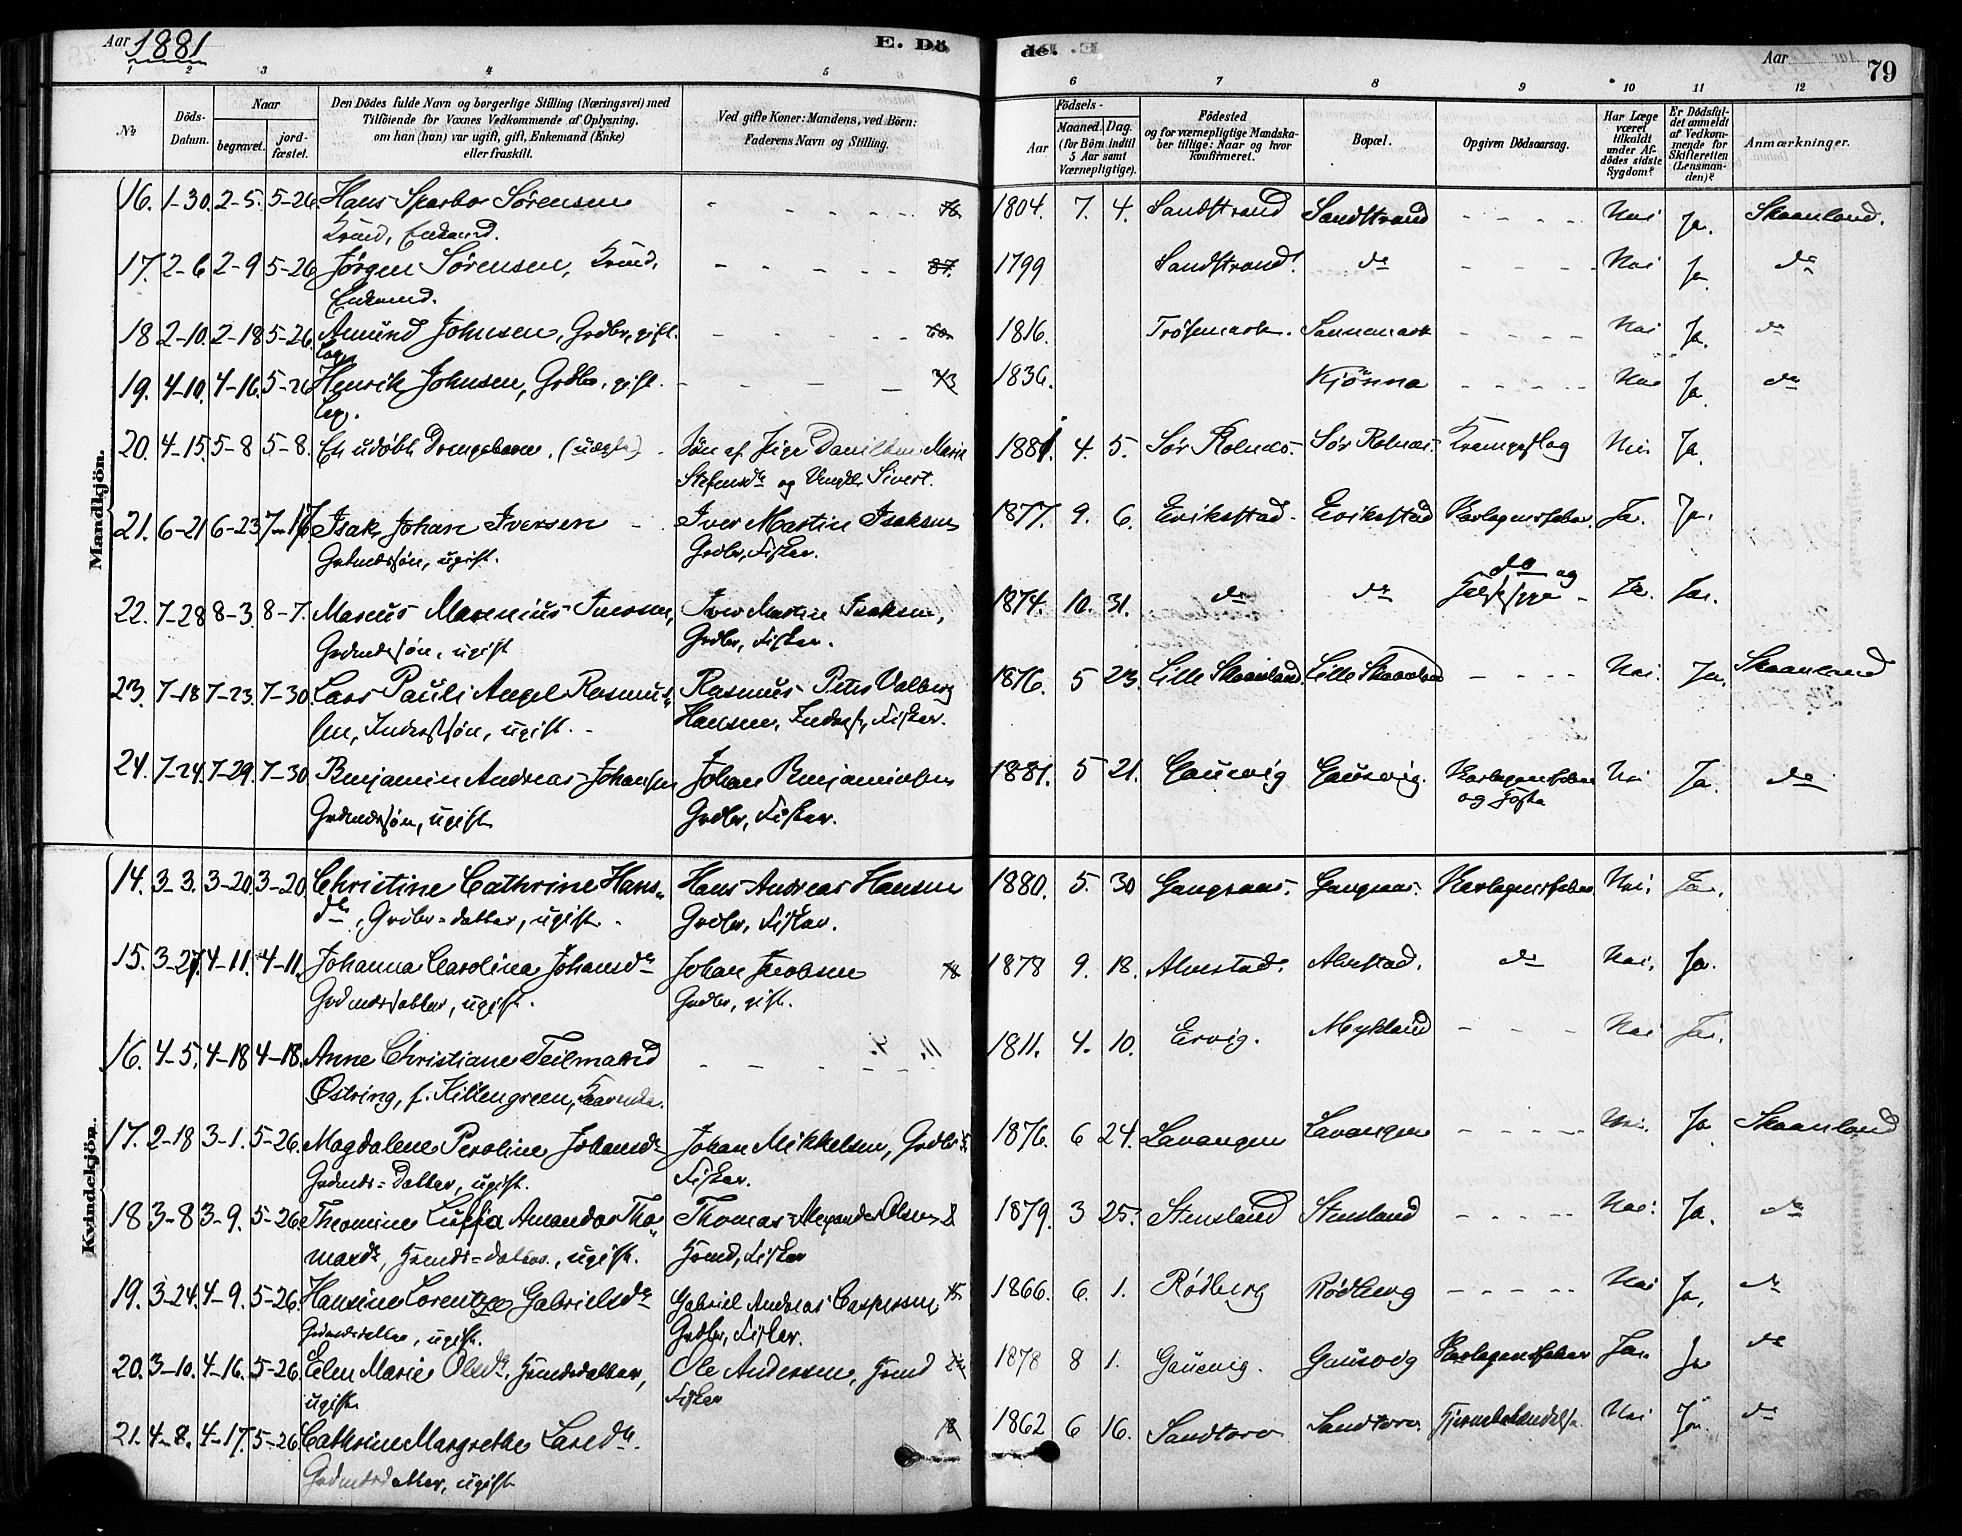 Aar 1881
E. Dö
de.
Aar
79
1 2 3 4 5 6 7 8 9 10 11 12
No
Döds-Datum.
Naar
begravet.
jordfæstet.
Den Dödes fulde Navn og borgerlige Stilling (Næringsvei) med
Tilföiende for Voxnes Vedkommende af Oplysning,
om han (hun) var ugift, gift, Enkemand (Enke)
eller fraskilt.
Ved gifte Koner: Mandens, ved Börn:
Faderens Navn og Stilling.
Födsels-
Aar
Maaned. Dag.
(for Börn indtil
5 Aar samt
Værnepligtige).
Födested
og for værnepligtige Mandska-
ber tillige: Naar og hvor
konfirmeret.
Bopæl.
Opgiven Dödsaarsag.
Har Læge
været
tilkaldt
under Af-
dödes sidste
Sygdom?
Er Dödsfal-
det anmeldt
af Vedkom-
mende for
Skifteretten
(Lensman-
den)?
Anmærkninger.
Mandkjön.
16. 1-30. 2-5. 5-26. Hans Sparboe Sørensen 76 1804. 7. 4. Sandstrand Sandstrand Nei Ja. Skaanland.
17. 2-6 2-9 5-26 Jørgen Sørensen, 1799 Sandstrand. do Nei Ja do
18 2-10. 2-18 5-26. Amund Johnsen, Grdbr, gift. 1816. Sannemark Nei Ja. do
19. 4-10. 4-16. 5-26 Henrik Johnsen, Grdbr, gift. 1836. Kjönna Nei Ja. do
20. 4-15. 5-8 5-8. Et udøbt Drengebarn, Søn af Pige Marie 1881. 4. 5. Sør Rolnes. Sør Rolnes. Krampeslag Nei Ja.
og Sivert.
21. 6-21 6-23 7-17 Isak Johan Iversen Iver Martin Isaksen 1877. 9. 6. Erikstad Erikstad Ja. Ja.
Grdmdssøn, ugift. Grdbr, Fisker.
22. 7-28 8-3. 8-7. Marcus Iversen, Iver Martin Isaksen, 1874. 10. 31. do do do og Ja. Ja.
Grdmdssøn, ugift Grdbr, Fisker.
23. 7-18 7-23. 7-30 Lars Pauli Angel Rasmus- Rasmus Peter Valberg 1876. 5 23. Lille Skaanland Lille Skaanland Nei. Ja. Skaanland
sen, Inderstsøn, ugift. Hansen, Inderst, Fisker.
24. 7-24. 7-29. 7-30 Benjamin Andreas Johansen Johan Benjaminsen 1881. 5 21. Gausvig Gausvig. Nei Ja. do
Grdmdssøn, ugift Grdbr, Fisker. og Hoste
Kvindekjön.
14. 3-3. 3-20. 3-20. Christine Cathrine Hans- Hans Andreas Hansen 1880. 5. 30 Gangsaas. Gangsaas. Nei. Ja.
dr, Grdbr-datter, ugift. Grdbr, Fisker.
15. 3-27. 4-11. 4-11. Johanna Carolina Johansdr Johan Jacobsen 1878 9. 18. Alvestad. Alvestad. do Nei. Ja.
Grdmdsdatter, ugift. Grdbr, gift.
16. 4-5. 4-18 4-18. Anne Christiane Teilmand 1811. 4. 10. Ervig. Mykland Nei Ja.
Østring, f. Killengreen,
17. 2-18 3-1. 5-26. Magdalene Peroline Johansdr Johan Mikkelsen, Grdbr 1876. 6 24. Lavangen Lavangen Nei. Ja Skaanland
Grdmds-Datter, ugift. Fisker.
18 3-8 3-9. 5-26. Theomine Luffia Amanda Tho- Thomas Alexander Olsen 1879. 3 25. Stensland Stensland Nei. Ja. do
masdr, Hsmds-datter, ugift. Hsmd, Fisker
19. 3-24. 4-9. 5-26. Hansine Lorentze Gabrielsdr Gabriel Andreas Caspersen 1866. 6. 1. Rödberg Rödberg Nei Ja. do
Grdmdsdatter, ugift. Grdbr, Fisker.
20. 3-10. 4-16. 5-26. Elen Marie Olesdr, Hsmdsdatter, Ole Andersen, Hsmd 1878 8 1. Gausvig. Gausvig Ja. Ja do
ugift Fisker
21. 4-8. 4-17. 5-26. Cathrine Margrethe Larsdr. 1862 6 16. Sandtorv Sandtorv. Nei Ja. do
Grdmdsdatter, ugift